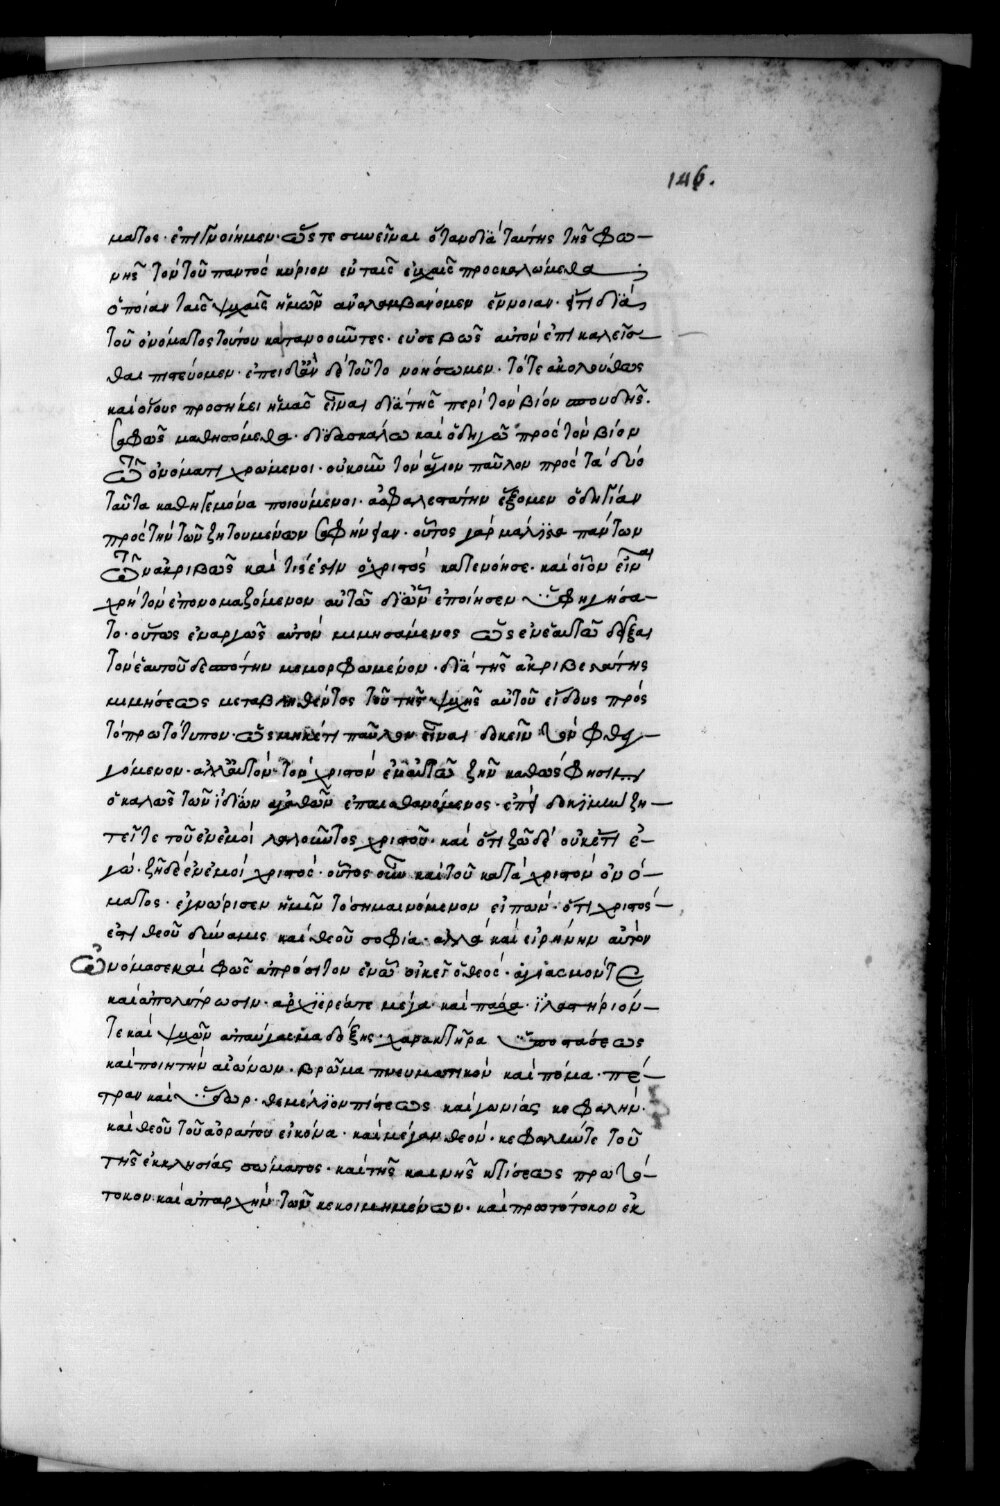 146.
ματος· ἐπιγνοίημεν· ὥστε συνεῖναι ὅταν διὰ ταύτης τῆς φω-
νῆς τὸν τοῦ παντὸς κύριον ἐν ταῖς εὐχαῖς προσκαλώμεθα
ὁποίαν ταῖς ψυχαῖς ἡμῶν ἀναλαμβανόμεν ἔννοιαν· ἔτι διὰ
τοῦ ὀνόματος τούτου κατανοοῦντες· εὐσεβῶς αὐτὸν ἐπικαλεῖσ-
θαι πιστεύομεν· ἐπειδὰν δὲ τοῦτο νοήσωμεν· τότε ἀκολούθως
καὶ οἵους προσήκει ἡμᾶς εἶναι διὰ τῆς περὶ τὸν βίον σπουδῆς·
σαφῶς μαθησόμεθα· διδασκάλω καὶ ὁδηγῶ πρὸς τὸν βίον
τῶ ὀνόματι χρώμενοι· οὐκοῦν τὸν ἅγιον παῦλον πρὸς τὰ δύο
ταῦτα καθηγεμόνα ποιούμενοι· ἀσφαλεστάτην ἕξομεν ὁδηγίαν
πρὸς τὴν τῶν ζητουμένων σαφήνειαν· οὗτος γὰρ μάλιστα πάντων
τῶν ἀκριβῶς καὶ τίς ἐστὶν ὁ χριστὸς κατενόησε· καὶ οἷον εἶναι
χρὴ τὸν ἐπονομαζόμενον αὐτῶ δι' ὧν ἐποίησεν ὑφηγήσα-
το· οὕτως ἐναργῶς αὐτὸν μιμησάμενος ὡς ἐν ἑαυτῶ δεῖξαι
τὸν ἑαυτοῦ δεσπότην μεμορφωμένον· διὰ τῆς ἀκριβεστάτης
μιμήσεως μεταβληθέντος τοῦ τῆς ψυχῆς αὐτοῦ εἴδους πρὸς
τὸ πρωτότυπον· ὡς μηκέτι παῦλον εἶναι δοκεῖν τὸν φθεγ-
γόμενον· ἀλλ' αὐτὸν τὸν χριστὸν ἐν αὐτῶ ζῆν καθώς φησιν
ὁ καλῶς τῶν ἰδίων ἀγαθῶν ἐπαισθανόμενος· ἐπεὶ δοκιμὴν ζη-
τεῖτε τοῦ ἐν ἐμοὶ λαλοῦντος χριστοῦ· καὶ ὅτι ζῶ δὲ οὐκέτι ἐ-
γώ· ζῆ δὲ ἐν ἐμοὶ χριστός· οὗτος οὖν καὶ τοῦ κατὰ χριστὸν ὀνό-
ματος· ἐγνώρισεν ἡμῖν τὸ σημαινόμενον εἰπών· ὅτι χριστὸς
ἐστὶ θεοῦ δύναμις καὶ θεοῦ σοφία· ἀλλὰ καὶ εἰρήνην αὐτὸν
ὠνόμασε καὶ φῶς ἀπρόσιτον ἐν ᾧ οἰκεῖ ὁ θεός· ἁγιασμόν τε
καὶ ἀπολύτρωσιν· ἀρχιερέα τε μέγα· καὶ πάσχα· ἱλαστήριόν-
τε καὶ ψυχῶν ἀπαύγασμα δόξης· χαρακτῆρα ὑποστάσεως
καὶ ποιητὴν αἰώνων· βρῶμα πνευματικὸν καὶ πόμα· πέ-
τραν καὶ ὕδωρ· θεμέλιον πίστεως καὶ γωνίας κεφαλήν·
καὶ θεοῦ τοῦ ἀοράτου εἰκόνα· καὶ μέγαν θεόν· κεφαλήν τε τοῦ
τῆς ἐκκλησίας σώματος· καὶ τῆς καινῆς κτίσεως πρωτό-
τοκον· καὶ ἀπαρχὴν τῶν κεκοιμημένων· καὶ πρωτότοκον ἐκ